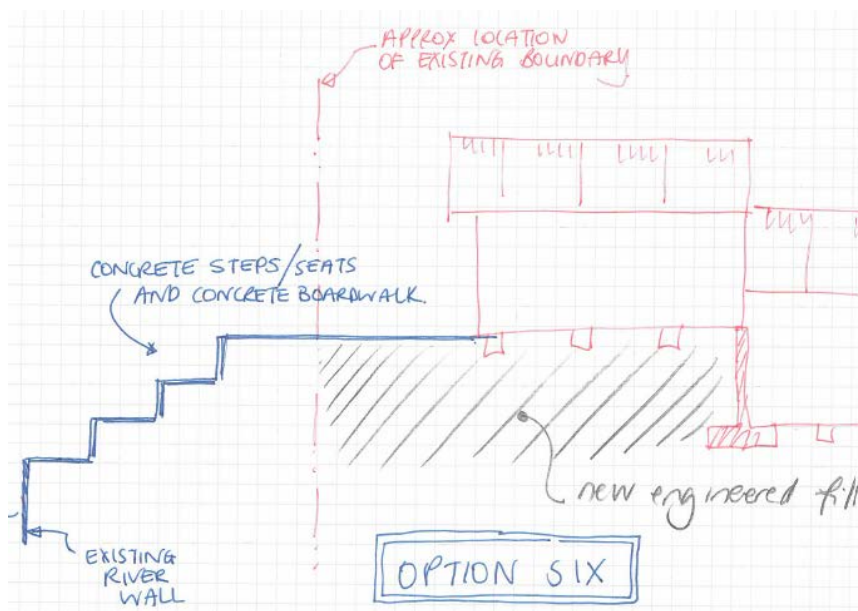 APPROX LOCATION
OF EXISTING BOUNDARY
CONCRETE STEPS/SEATS
AND CONCRETE BOARDWALK.
new engineered fill
EXISTING
RIVER
WALL
OPTION SIX